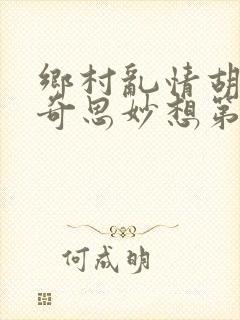 鄉村亂情胡
奇思妙想第
何成明